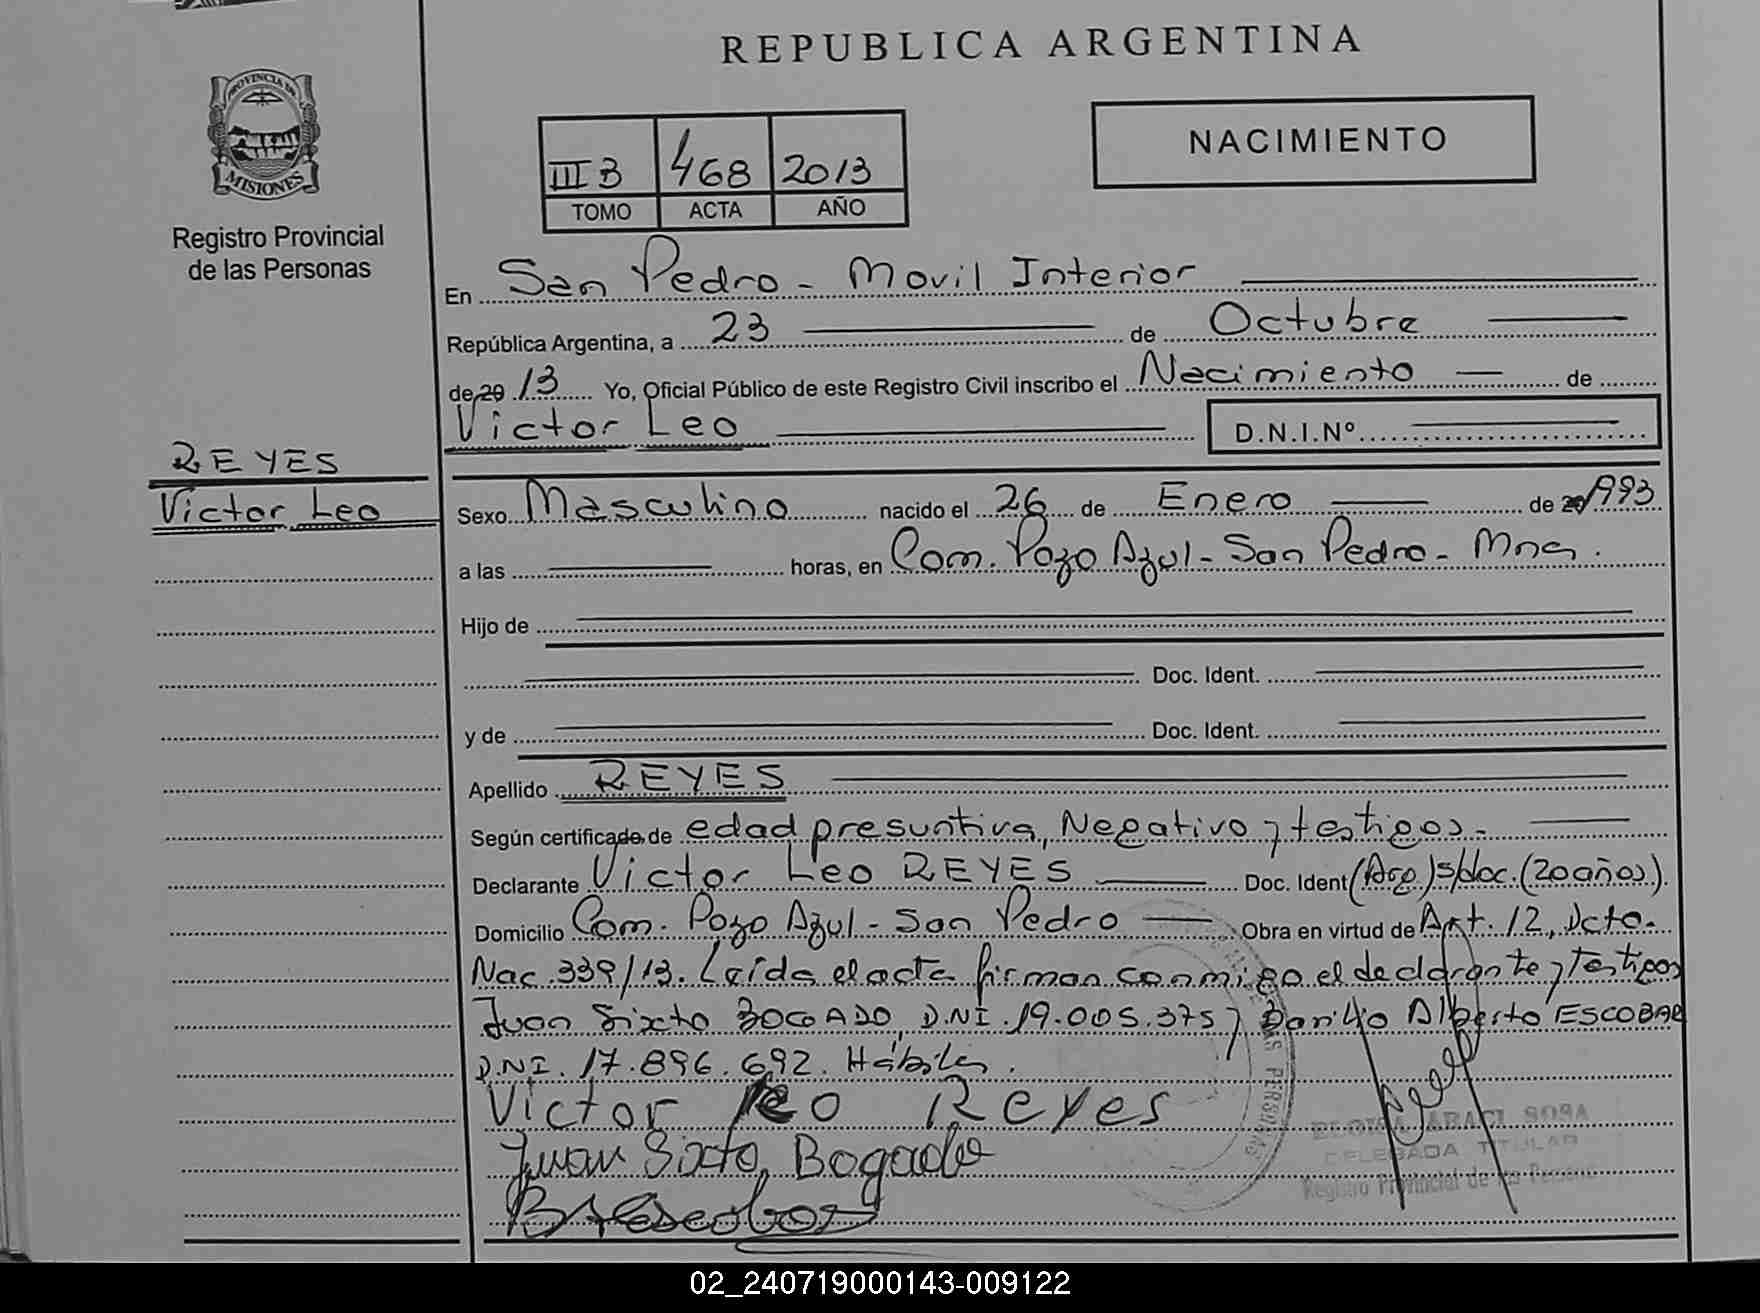 REPUBLICA ARGENTINA
PROVINCIA DE
MISIONES
Registro Provincial
de las Personas
III B 468 2013
TOMO ACTA AÑO
NACIMIENTO
En San Pedro - Movil Interior
República Argentina, a 23 de Octubre
de 20 13 Yo, Oficial Público de este Registro Civil inscribo el Nacimiento de
Victor Leo D.N.I.Nº
REYES
Victor Leo
Sexo Masculino nacido el 26 de Enero de 20 1993
a las horas, en Com. Pozo Azul - San Pedro - Mnes.
Hijo de
Doc. Ident.
y de Doc. Ident.
Apellido REYES
Según certificado de edad presuntiva, Negativo y testigos.-
Declarante Victor Leo REYES Doc. Ident (Arg.) s/doc. (20 años).
Domicilio Com. Pozo Azul - San Pedro Obra en virtud de Art. 12, Dcto.
Nac. 339/13. Leída el acta firman conmigo el declarante y testigos
Juan Sixto BOGADO, D.N.I. 19.005.375 y Danilo Alberto ESCOBAR
D.N.I. 17.896.692. Hábiles.
Victor Leo Reyes
Juan Sixto, Bogado
AS PERSONAS
ARACI SOSA
DELEGADA TITULAR
Registro Provincial de las Personas
02_240719000143-009122